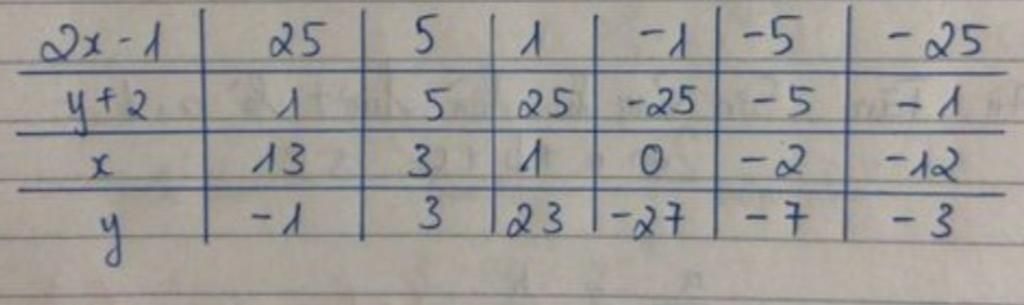 2x-1 25 5 1 -1 -5 -25
y+2 1 5 25 -25 -5 -1
x 13 3 1 0 -2 -12
y -1 3 23 -27 -7 -3